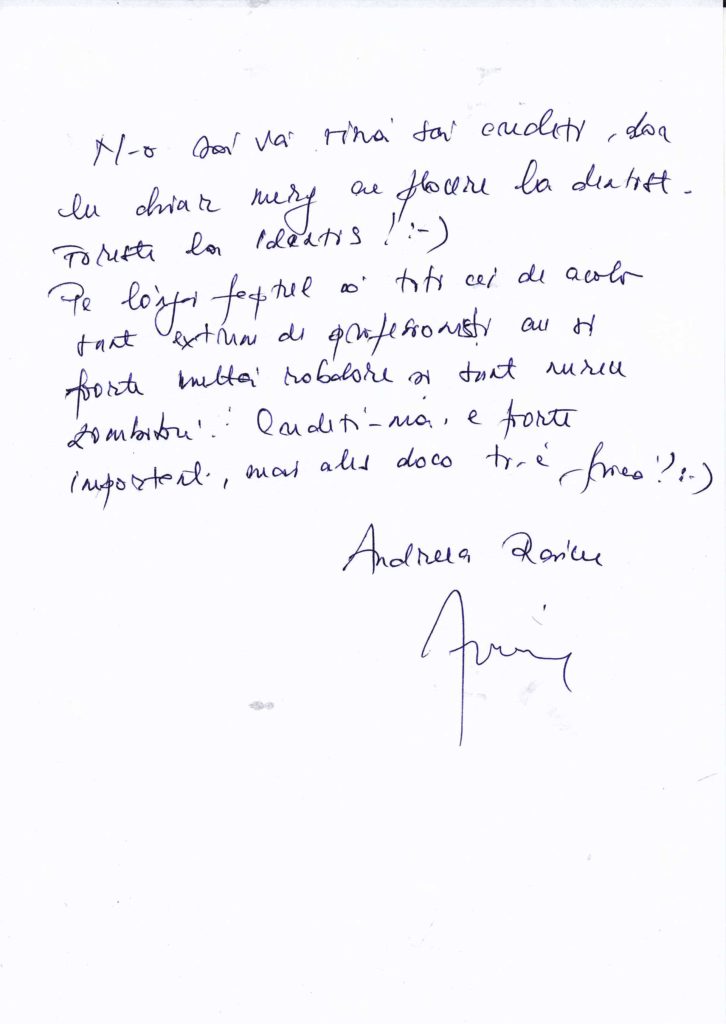 N-o să vă vină să credeți, dar
eu chiar merg cu plăcere la dentist.
la Identis! :-)
Pe lângă faptul că toți cei de acolo
sunt extrem de profesioniști au și
foarte multă răbdare și sunt mereu
zâmbitori! Credeți-mă, e foarte
important, mai ales dacă ți-e frică! :-)
Andreea